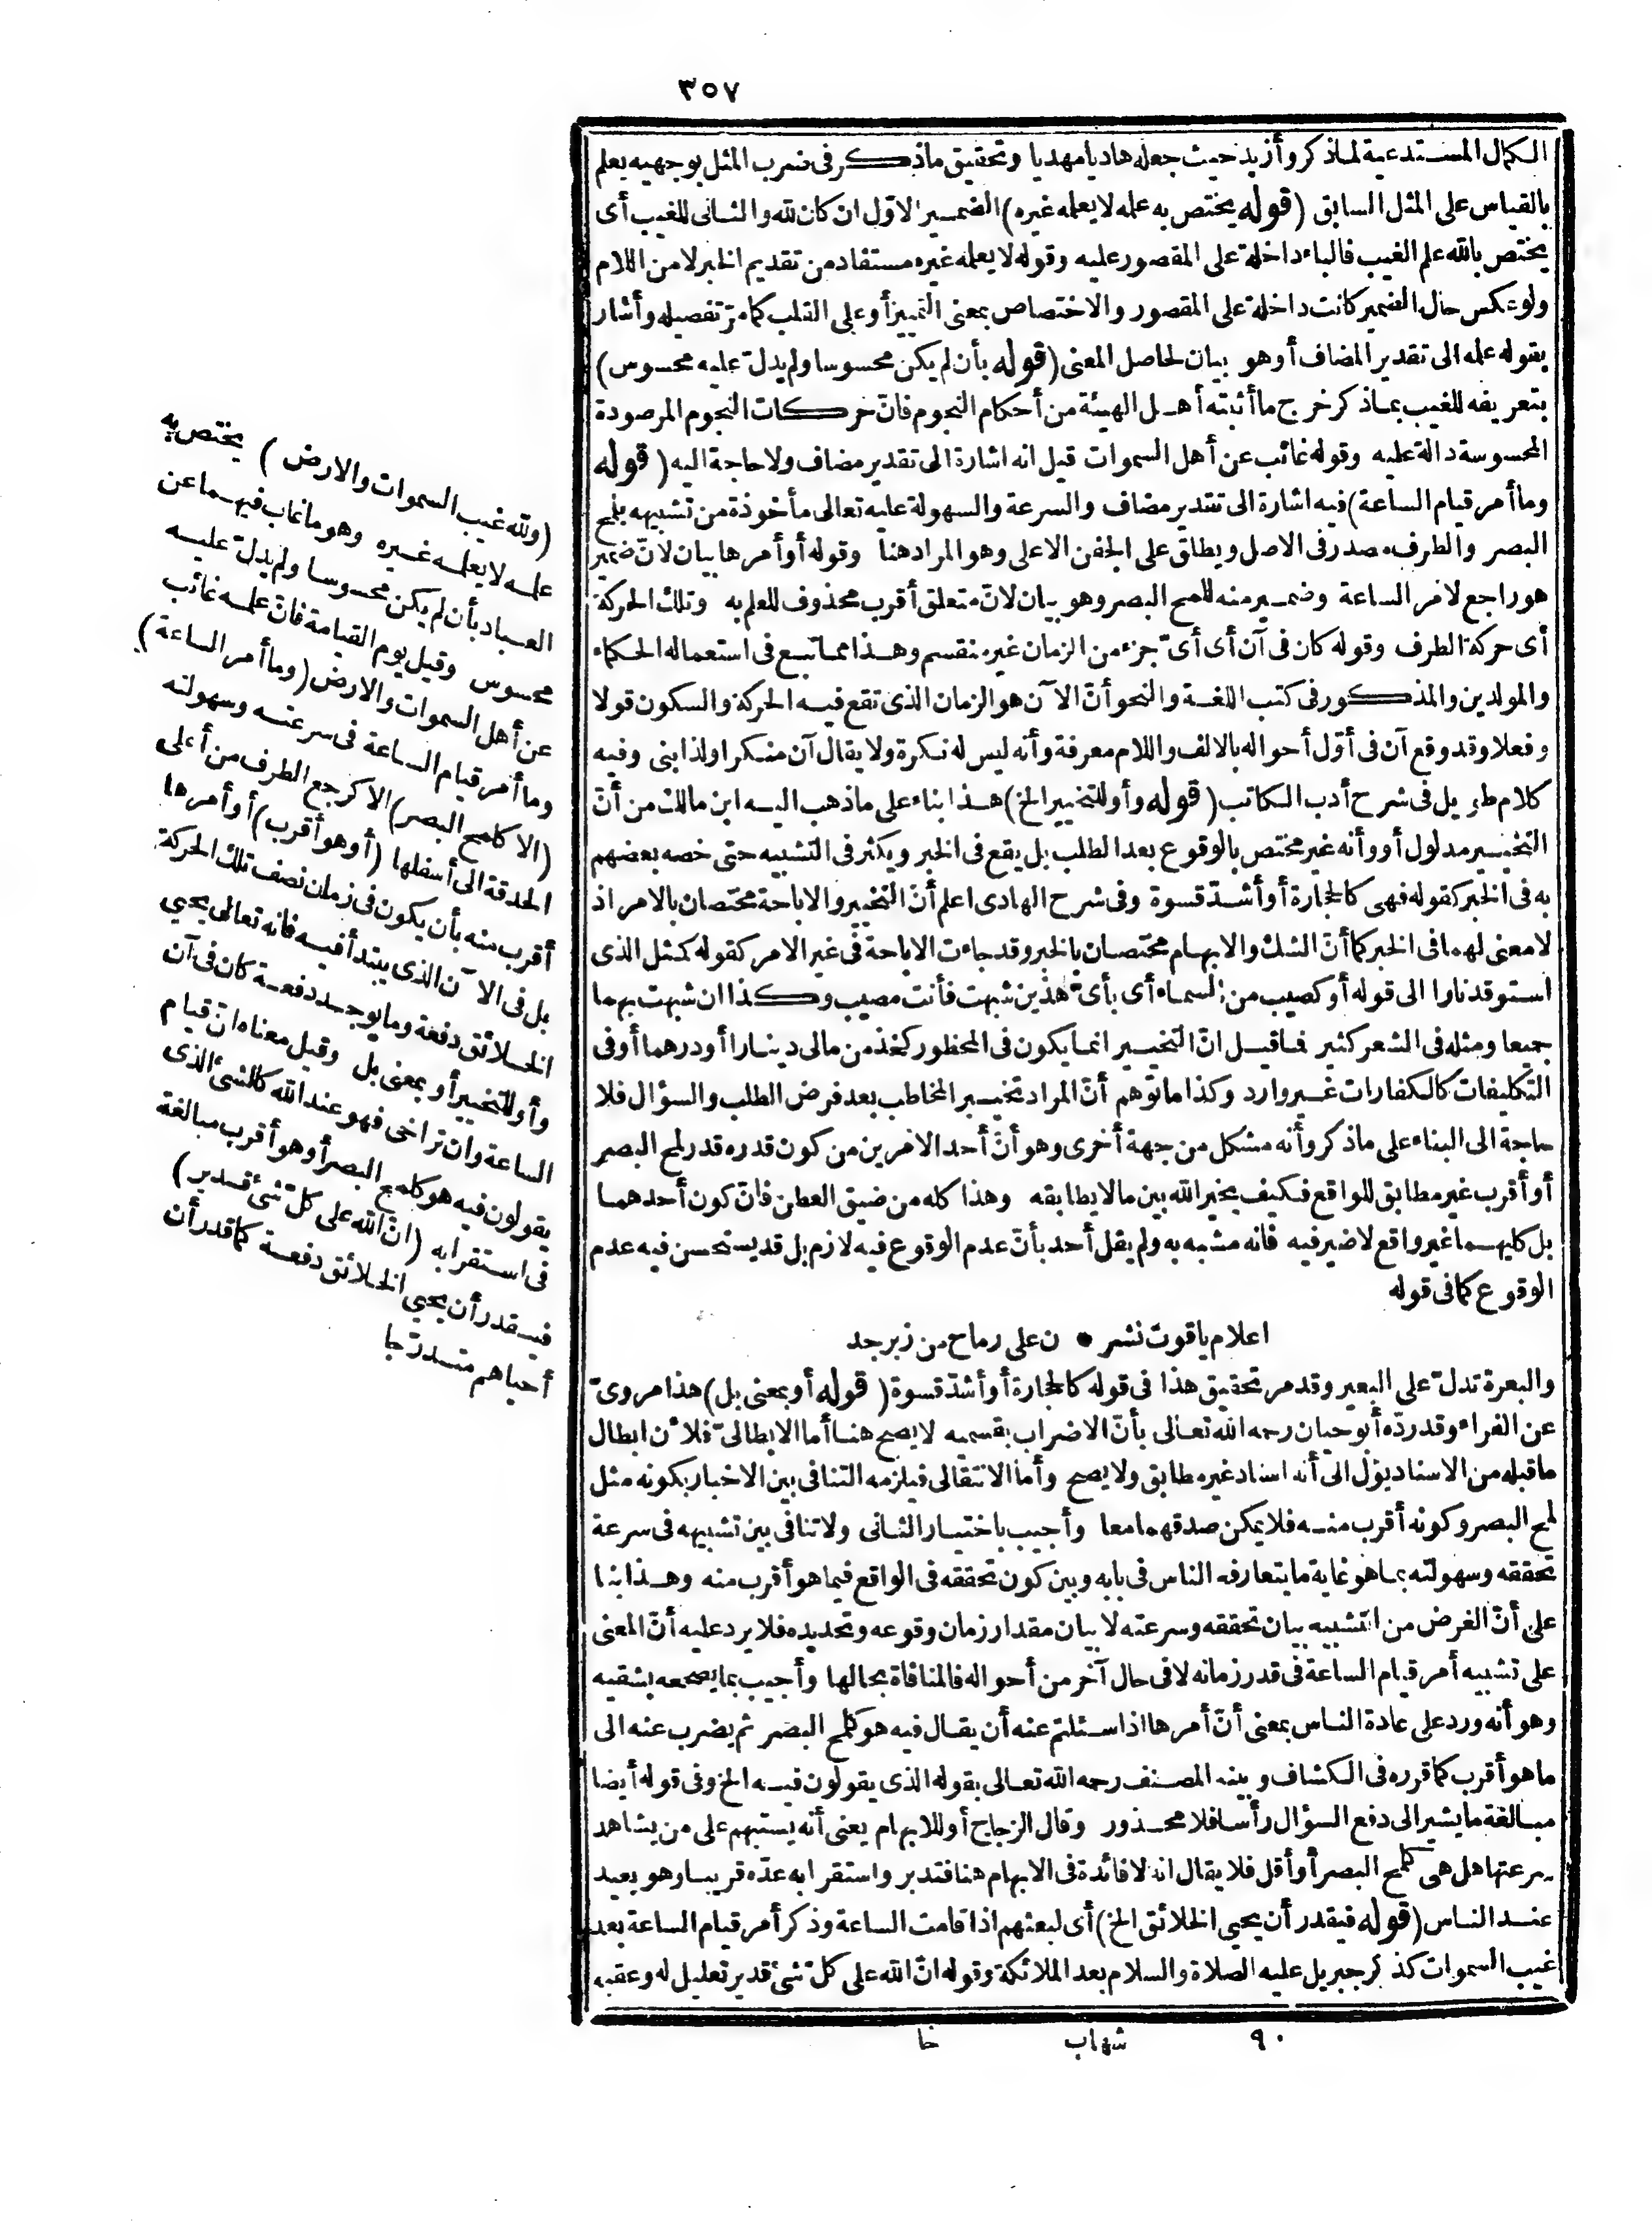 ٣٥٧
الكمال المستدعية لماذكر وأزيد حيث جعله هاديا مهديا وتحقيق ماذكر فى ضرب المثل بوجهيه يعلم
بالقياس على المثل السابق (قوله يختص به علمه لايعلمه غيره) الضمير الاوّل ان كان لله والثانى للغيب أى
يختص بالله علم الغيب فالباء داخلة على المقصور عليه وقوله لايعلمه غيره مستفاد من تقديم الخبر لا من اللام
ولوعكس حال الضمير كانت داخلة على المقصور والاختصاص بمعنى التمييز أوعلى القلب كمامرّ تفصيله وأشار
بقوله علمه الى تقدير المضاف أوهو بيان لحاصل المعنى (قوله بأن لم يكن محسوسا ولم يدلّ عليه محسوس)
بتعريفه للغيب بماذكر خرج ماأثبته أهل الهيئة من أحكام النجوم فانّ حركات النجوم المرصودة
المحسوسة دالة عليه وقوله غائب عن أهل السموات قيل انه اشارة الى تقدير مضاف ولاحاجة اليه (قوله
وماأمر قيام الساعة) فيه اشارة الى تقدير مضاف والسرعة والسهولة عليه تعالى مأخوذة من تشبيهه بلمح
البصر والطرف مصدر فى الاصل ويطلق على الجفن الاعلى وهو المراد هنا وقوله أوأمرها بيان لانّ ضمير
هو راجع لامر الساعة وضمير منه للمح البصر وهو بيان لانّ متعلق أقرب محذوف للعلم به وتلك الحركة
أى حركة الطرف وقوله كان فى آن أى أىّ جزء من الزمان غير منقسم وهذا مماتبع فى استعماله الحكماء
والمولدين والمذكور فى كتب اللغة والنحو أنّ الآن هو الزمان الذى تقع فيه الحركة والسكون قولا
وفعلا وقد وقع آن فى أوّل أحواله بالالف واللام معرفة وأنه ليس له نكرة ولايقال آن منكرا ولذا بنى وفيه
كلام طويل فى شرح أدب الكاتب (قوله وأوللتخيير الخ) هذا بناء على ماذهب اليه ابن مالك من أنّ
التخيير مدلول أو وأنه غير مختص بالوقوع بعد الطلب بل يقع فى الخبر ويكثر فى التشبيه حتى خصه بعضهم
به فى الخبر كقوله فهى كالحجارة أوأشدّ قسوة وفى شرح الهادى اعلم أنّ التخيير والاباحة مختصان بالامر اذ
لامعنى لهما فى الخبر كماأنّ الشك والابهام مختصان بالخبر وقدجاءت الاباحة فى غير الامر كقوله كمثل الذى
استوقد نارا الى قوله أوكصيب من السماء أى بأىّ هذين شبهت فأنت مصيب وكذا ان شبهت بهما
جميعا ومثله فى الشعر كثير فماقيل انّ التخيير انمايكون فى المحظور كخذ من مالى دينارا أودرهما أوفى
التكليفات كالكفارات غير وارد وكذا ماتوهم أنّ المراد تخيير المخاطب بعد فرض الطلب والسؤال فلا
حاجة الى البناء على ماذكر وأنه مشكل من جهة أخرى وهو أنّ أحد الامرين من كون قدره قدر لمح البصر
أوأقرب غير مطابق للواقع فكيف يخير الله بين مالايطابقه وهذا كله من ضيق العطن فانّ كون أحدهما
بل كليهما غير واقع لاضير فيه فانه مشبه به ولم يقل أحد بأنّ عدم الوقوع فيه لازم بل قديستحسن فيه عدم
الوقوع كمافى قوله
اعلام ياقوت نشر * ن على رماح من زبرجد
والبعرة تدلّ على البعير وقدمر تحقيق هذا فى قوله كالحجارة أوأشدّ قسوة (قوله أوبمعنى بل) هذا مروىّ
عن الفراء وقدردّه أبوحيان رحمه الله تعالى بأنّ الاضراب بقسميه لايصح هنا أما الابطالىّ فلأن ابطال
ماقبله من الاسناد يؤل الى أنه اسناد غير مطابق ولايصح وأما الانتقالى فيلزمه التنافى بين الاخبار بكونه مثل
لمح البصر وكونه أقرب منه فلايمكن صدقهما معا وأجيب باختيار الثانى ولاتنافى بين تشبيهه فى سرعة
تحققه وسهولته بماهو غاية مايتعارفه الناس فى بابه وبين كون تحققه فى الواقع فيما هو أقرب منه وهذا بناء
على أنّ الغرض من التشبيه بيان تحققه وسرعته لابيان مقدار زمان وقوعه وتحديده فلايرد عليه أنّ المعنى
على تشبيه أمر قيام الساعة فى قدر زمانه لافى حال آخر من أحواله فالمنافاة بحالها وأجيب بمايصححه بشقيه
وهو أنه ورد على عادة الناس بمعنى أنّ أمرها اذا سئلتم عنه أن يقال فيه هو كلمح البصر ثم يضرب عنه الى
ماهو أقرب كماقرره فى الكشاف وبينه المصنف رحمه الله تعالى بقوله الذى يقولون فيه الخ وفى قوله أيضا
مبالغة مايشير الى دفع السؤال رأسا فلامحذور وقال الزجاج أوللابهام يعنى أنه يستبهم على من يشاهد
سرعتها هل هى كلمح البصر أوأقل فلايقال انه لافائدة فى الابهام هنا فتدبر واستقرابه عدّه قريبا وهو بعيد
عند الناس (قوله فيقدر أن يحيى الخلائق الخ) أى لبعثهم اذا قامت الساعة وذكر أمر قيام الساعة بعد
غيب السموات كذكر جبريل عليه الصلاة والسلام بعد الملائكة وقوله انّ الله على كلّ شئ قدير تعليل له وعقبه
(ولله غيب السموات والارض) يختص به
علمه لايعلمه غيره وهو ماغاب فيهما عن
العباد بأن لم يكن محسوسا ولم يدلّ عليه
محسوس وقيل يوم القيامة فانّ علمه غائب
عن أهل السموات والارض (وماأمر الساعة)
وماأمر قيام الساعة فى سرعته وسهولته
(الا كلمح البصر) الا كرجع الطرف من أعلى
الحدقة الى أسفلها (أوهو أقرب) أوأمرها
أقرب منه بأن يكون فى زمان نصف تلك الحركة
بل فى الآن الذى يبتدأ فيه فانه تعالى يحيى
الخلائق دفعة ومايوجد دفعة كان فى آن
وأوللتخيير أوبمعنى بل وقيل معناه انّ قيام
الساعة وان تراخى فهو عند الله كالشئ الذى
يقولون فيه هو كلمح البصر أوهو أقرب مبالغة
فى استقرابه (انّ الله على كلّ شئ قدير)
فيقدر أن يحيى الخلائق دفعة كماقدر أن
أحياهم متدرّجا
٩٠ شهاب خا